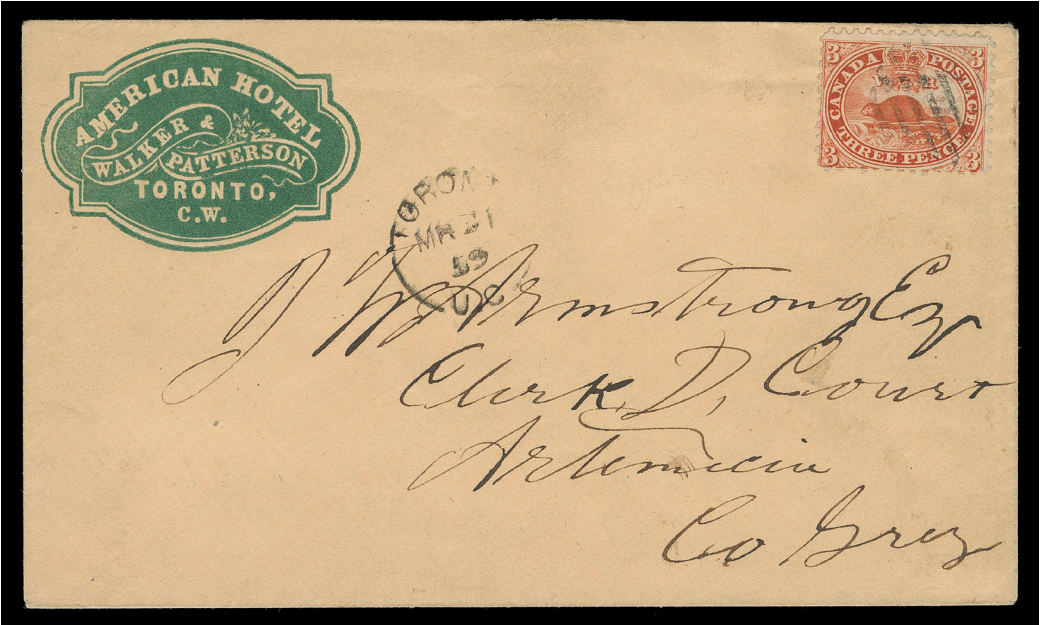 AMERICAN HOTEL
WALKER &
PATTERSON
TORONTO,
C.W.
3 3
CANADA POSTAGE
V R
THREE PENCE.
3 3
TORONT
MR 31
59
U.C
J W Armstrong Esq
Clerk D. Court
Artemicia
Co Grey